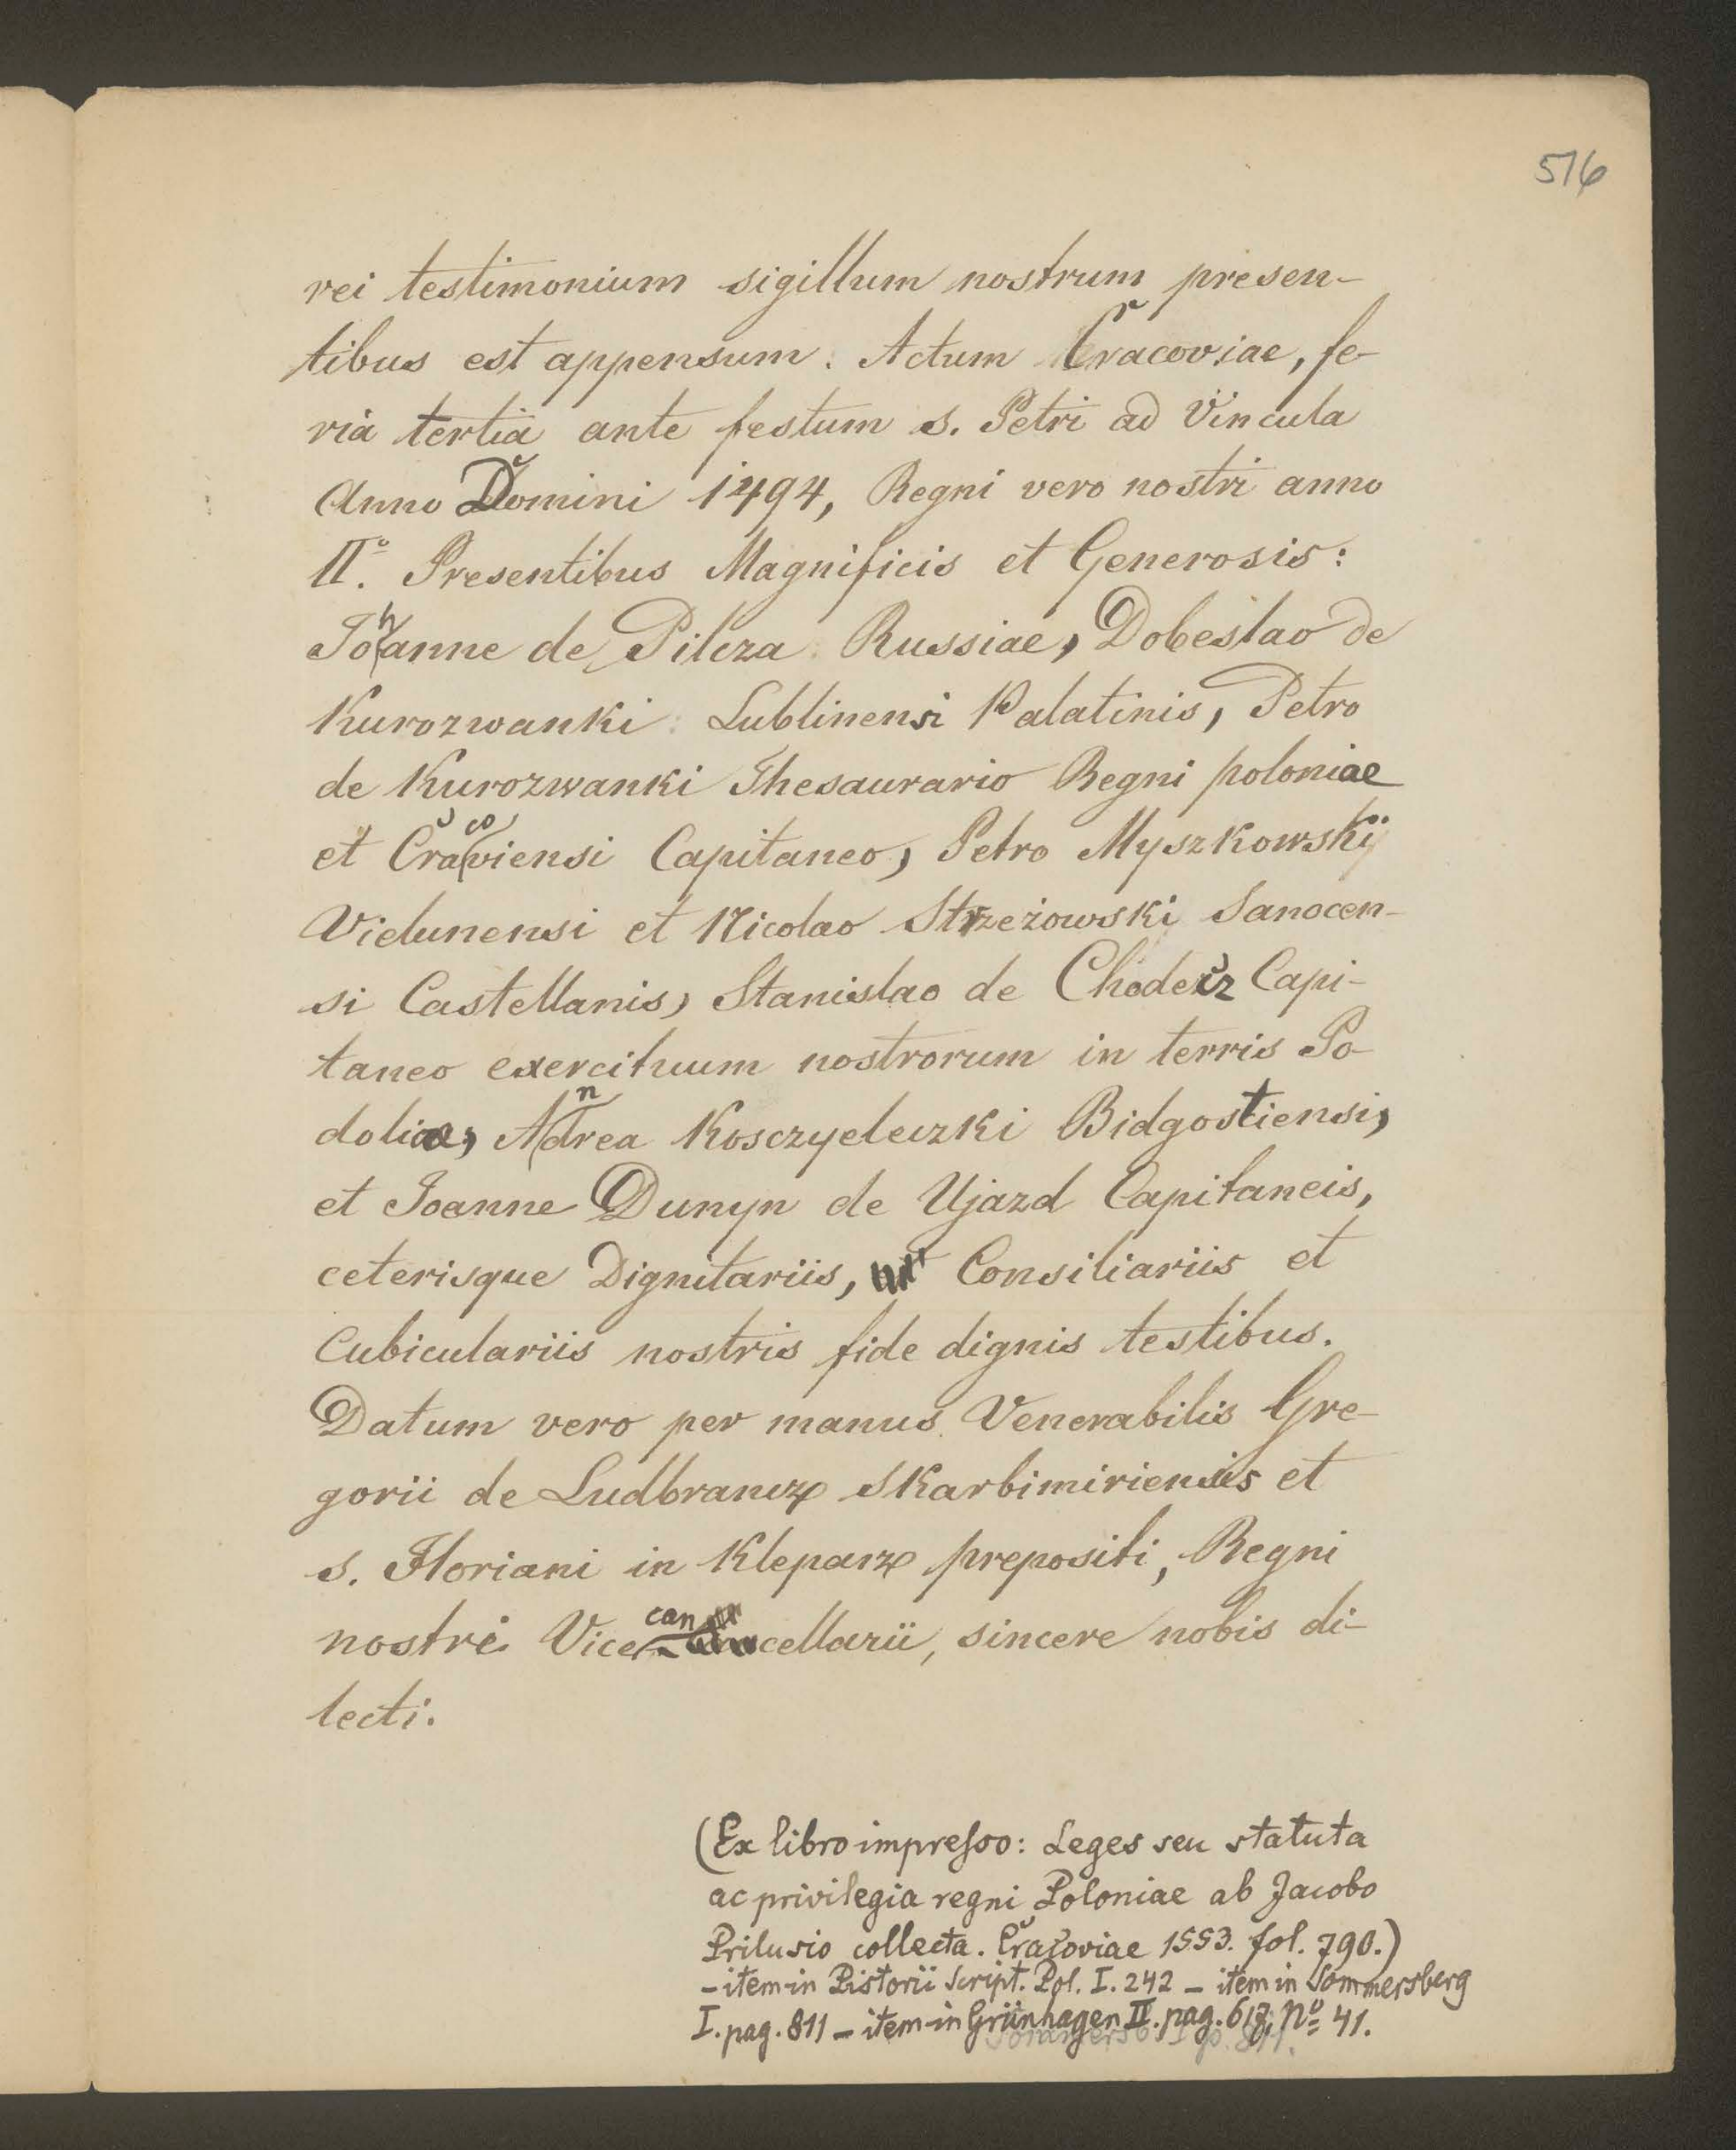 516
rei testimonium sigillum nostrum presen-
tibus est appensum. Actum Cracoviae, fe-
ria tertia ante festum s. Petri ad Vincula
Anno Domini 1494, Regni vero nostri anno
IIº. Presentibus Magnificis et Generosis:
Johanne de Pilcza Russiae, Dobeslao de
Kurozwanki Lublinensi Palatinis, Petro
de Kurozwanki Thesaurario Regni poloniae
et Cracoviensi Capitaneo, Petro Myszkowskij
Vielunensi et Nicolao Strzeżowski Sanocen-
si Castellanis, Stanislao de Chodecz Capi-
taneo exercituum nostrorum in terris Po-
doliae, Andrea Kosczyeleczki Bidgostiensi,
et Joanne Dunyn de Ujazd Capitaneis,
ceterisque Dignitariis, Consiliariis et
Cubiculariis nostris fide dignis testibus.
Datum vero per manus Venerabilis Gre-
gorii de Ludbrancz Skarbimiriensis et
s. Floriani in Kleparz prepositi, Regni
nostri Vice-cancellarii, sincere nobis di-
lecti.
(Ex libro impresso: Leges seu statuta
ac privilegia regni Poloniae ab Jacobo
Prilusio collecta. Cracoviae 1553. fol. 790.)
- item in Pistorii Script. Pol. I. 242 - item in Sommersberg
I. pag. 811 - item in Grünhagen II. pag. 617, Nº 41.